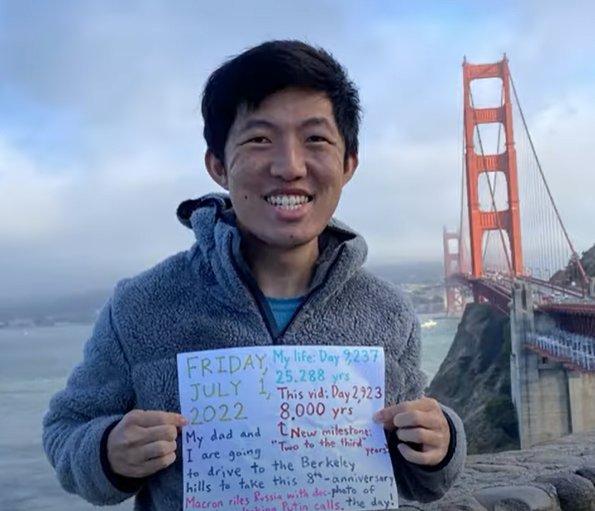 FRIDAY, My life: Day 9,237
JULY 1, 25.288 yrs
2022 This vid: Day 2,923
8,000 yrs
My dad and ↳ New milestone:
I are going "Two to the third" years.
to drive to the Berkeley
hills to take this 8th-anniversary
Macron riles Russia with doc- photo of
Putin calls. the day!